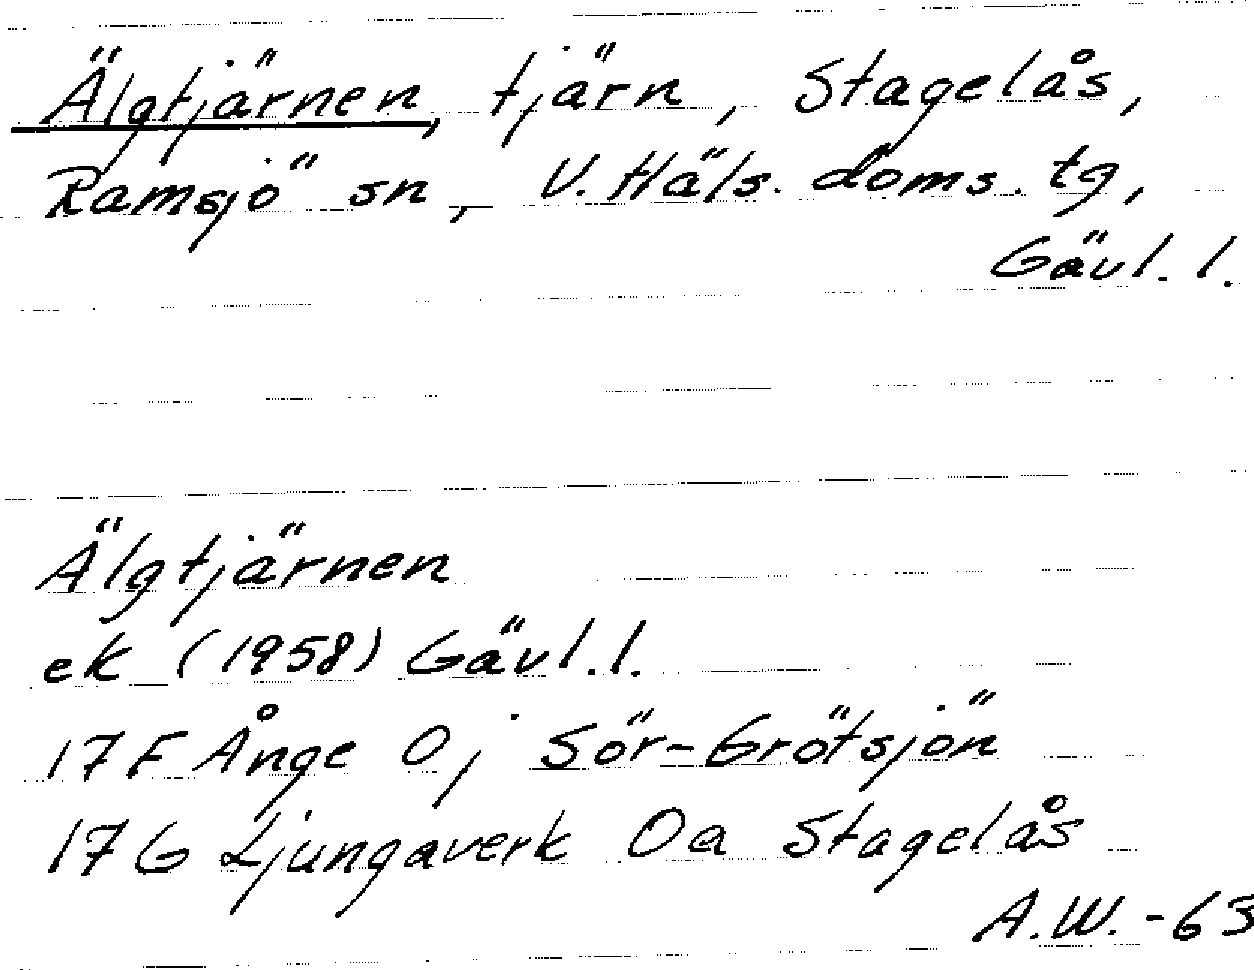 Älgtjärnen, tjärn, Stagelås,
Ramsjö sn, V. Häls. doms. tg,
Gävl. l.
Älgtjärnen
ek (1958) Gävl. l.
17 F Ånge 0j Sör-Grötsjön
17 G Ljungaverk 0a Stagelås
A.W. -63